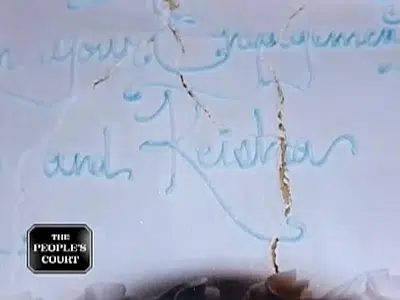 n your Engagement
and Keisha
THE
PEOPLE'S
COURT